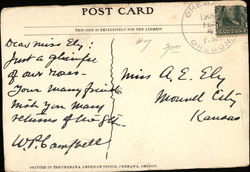 POST CARD
THIS SIDE IS EXCLUSIVELY FOR THE ADDRESS
CHEMAWA
OREGON
Dear Miss Ely:
Just a glimpse
of our roses.
Your many friends
wish you many
returns of the
W.P. Campbell
Miss A. E. Ely
Mound City
Kansas
PRINTED IN THE CHEMAWA AMERICAN OFFICE, CHEMAWA, OREGON.